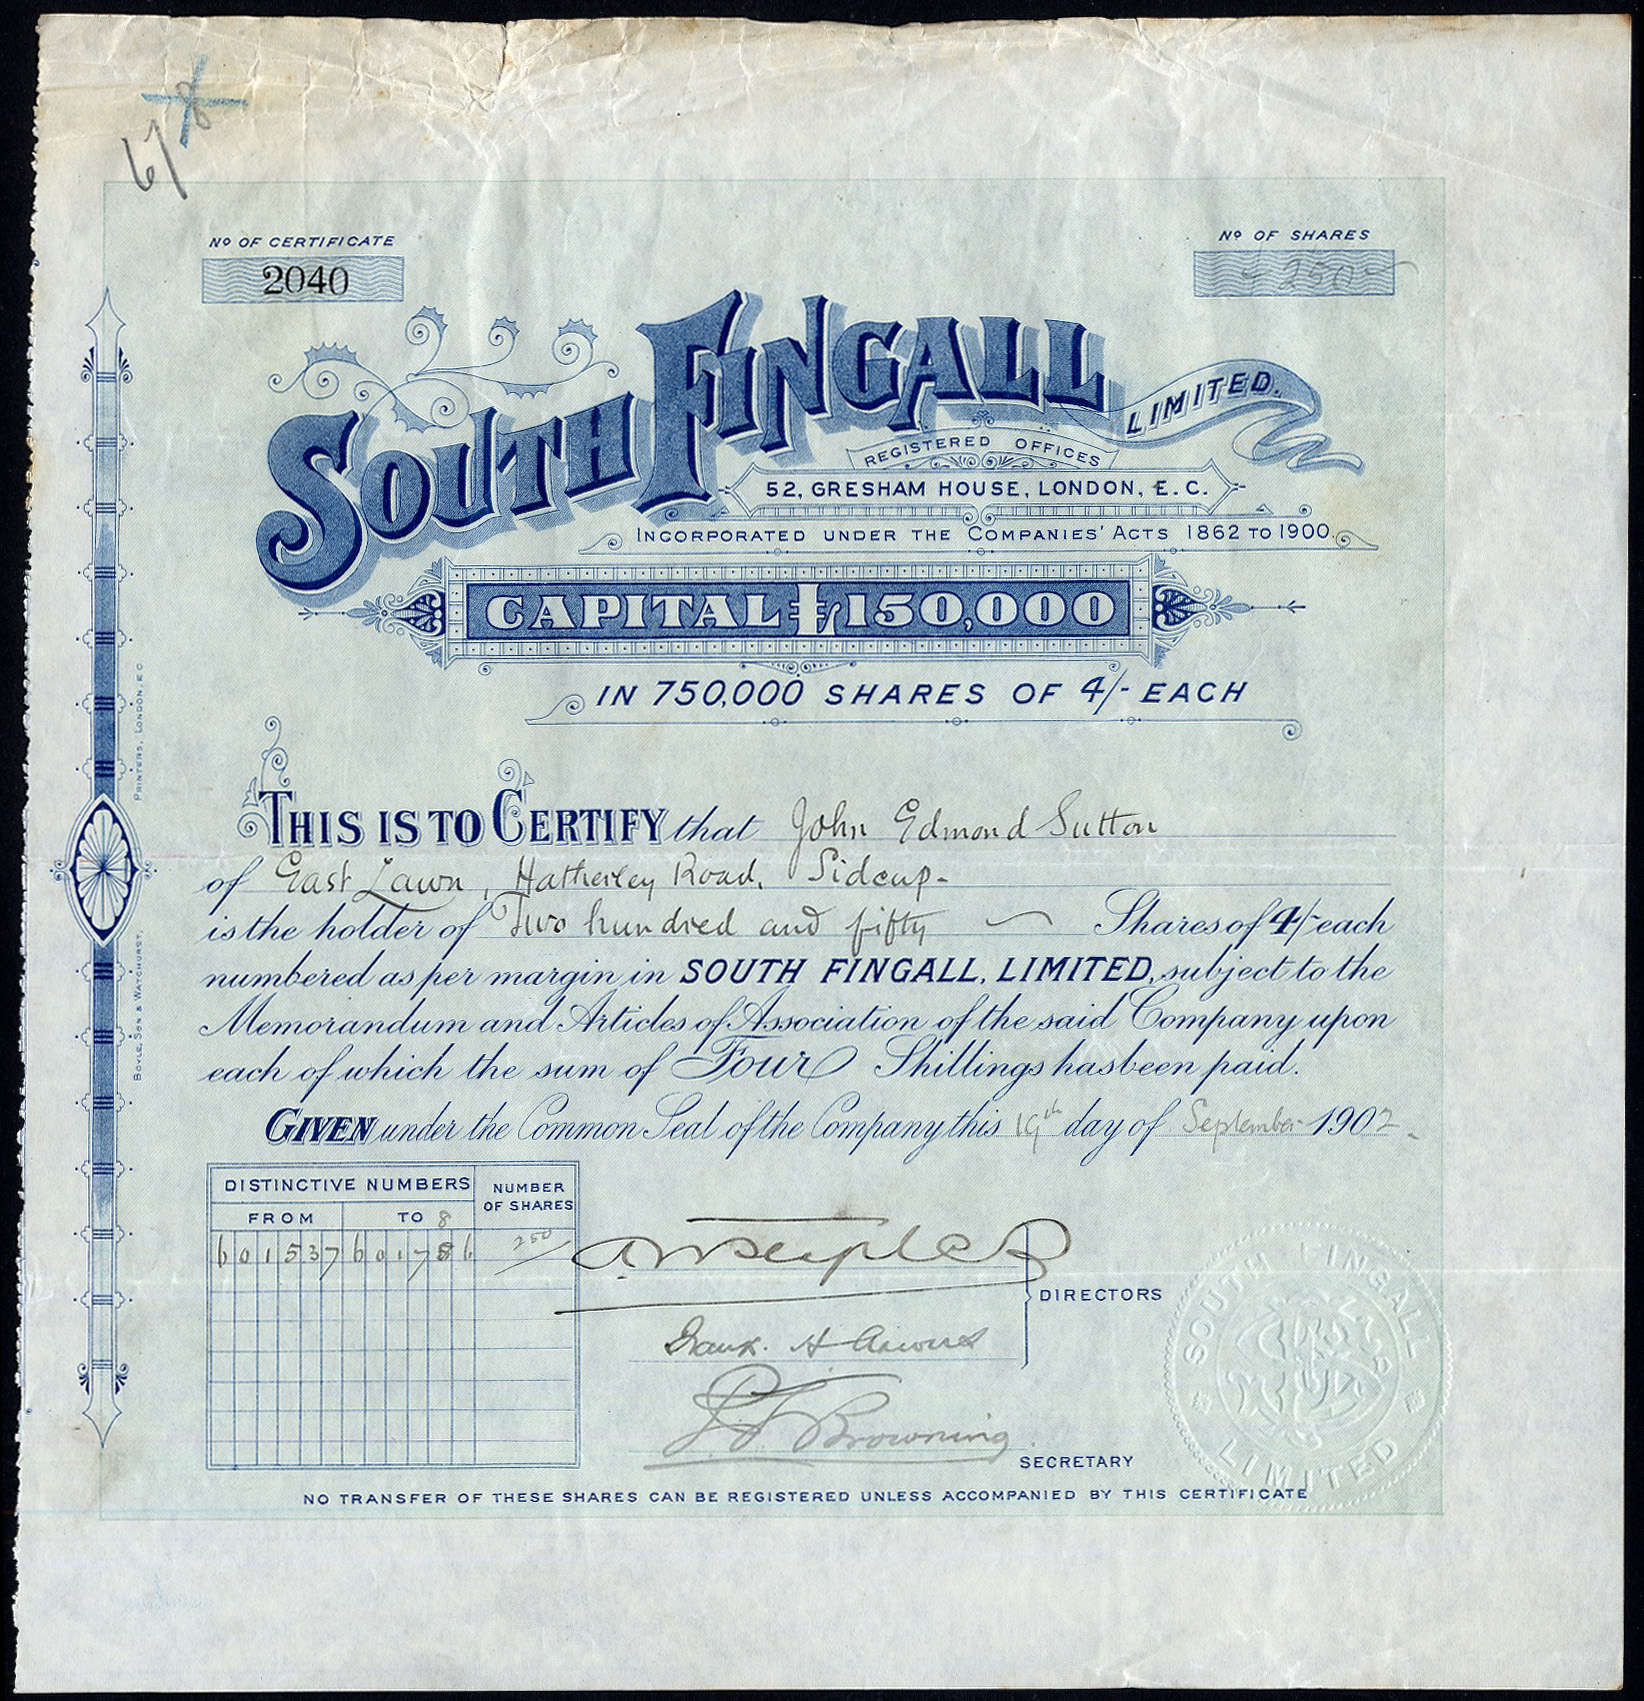 67/8
Nº OF CERTIFICATE
2040
Nº OF SHARES
250
SOUTH FINGALL LIMITED.
REGISTERED OFFICES
52, GRESHAM HOUSE, LONDON, E.C.
INCORPORATED UNDER THE COMPANIES' ACTS 1862 TO 1900.
CAPITAL £150,000
IN 750,000 SHARES OF 4/- EACH
THIS IS TO CERTIFY that John Edmond Sutton
of East Lawn, Hatherley Road, Sidcup-
is the holder of Two hundred and fifty Shares of 4/- each
numbered as per margin in SOUTH FINGALL, LIMITED, subject to the
Memorandum and Articles of Association of the said Company upon
each of which the sum of Four Shillings has been paid.
GIVEN under the Common Seal of the Company this 19th day of September 1902.
DISTINCTIVE NUMBERS
NUMBER OF SHARES
FROM
TO 8
601537 601786
250
DIRECTORS
Frank. H
Browning
SECRETARY
SOUTH FINGALL LIMITED
NO TRANSFER OF THESE SHARES CAN BE REGISTERED UNLESS ACCOMPANIED BY THIS CERTIFICATE
BOYLE, SON & WATCHURST,
PRINTERS, LONDON, E.C.